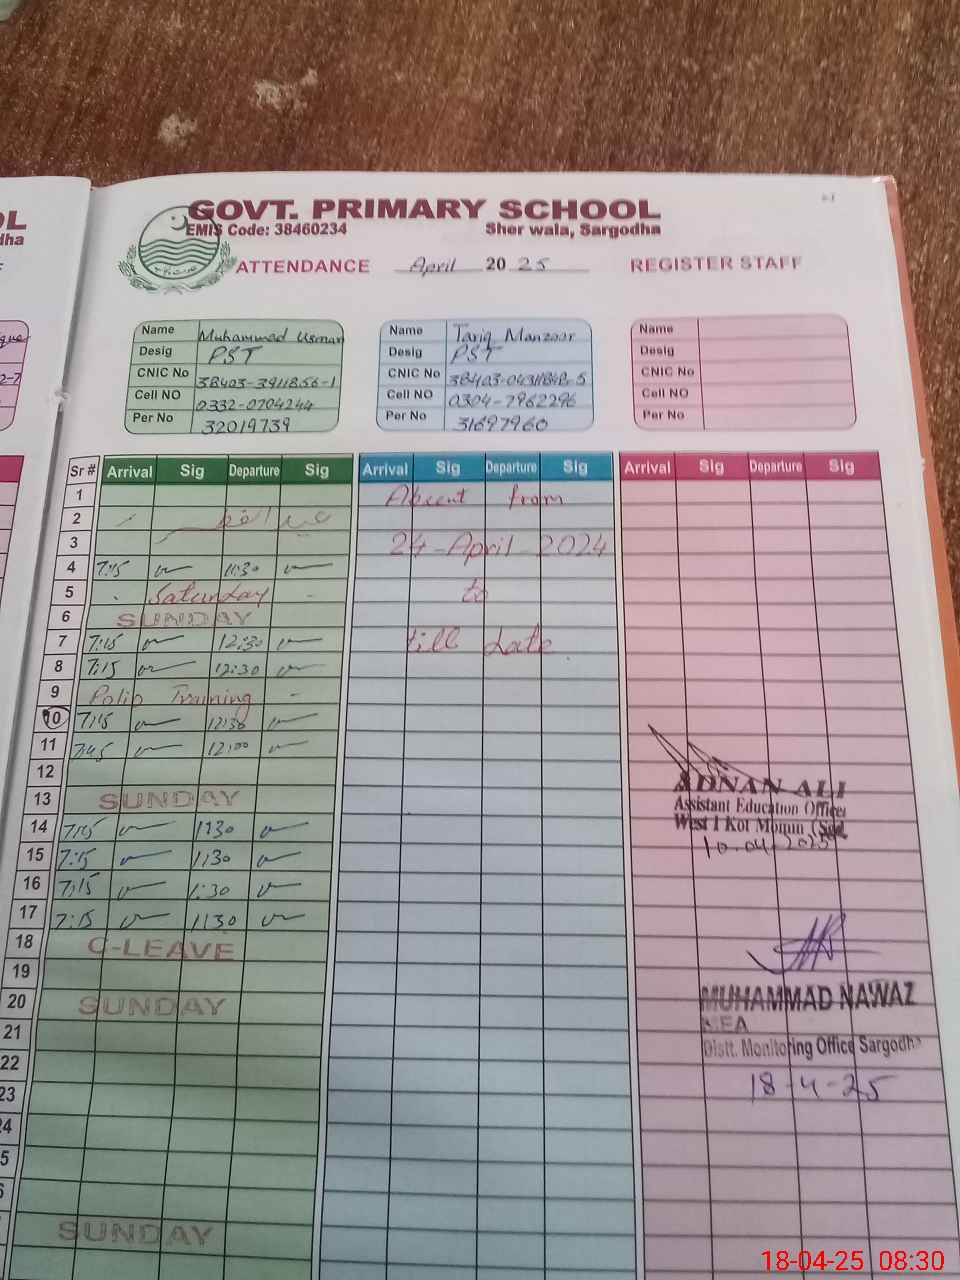 OL
GOVT. PRIMARY SCHOOL
dha
EMIS Code: 38460234 Sher wala, Sargodha
ATTENDANCE April 2025 REGISTER STAFF
Name Muhammad Usman
Desig PST
CNIC No 38403-3911856-1
Cell NO 0332-0704244
Per No 32019739
Name Tariq Manzoor
Desig PST
CNIC No 38403-0431848-5
Cell NO 0304-7962296
Per No 31697960
Name
Desig
CNIC No
Cell NO
Per No
Sr # Arrival Sig Departure Sig Arrival Sig Departure Sig Arrival Sig Departure Sig
1 Absent from
2 عید الفطر
3 24-April-2024
4 7:15 11:30
5 Saturday to
6 SUNDAY
7 7:15 12:30 till date.
8 7:15 12:30
9 Polio Training -
10 7:15 12:30
11 7:45 12:00
12
13 SUNDAY
14 7:15 1:30
15 7:15 1:30
16 7:15 1:30
17 7:15 1:30
18 C-LEAVE
19
20 SUNDAY
21
22
23
24
5
6
SUNDAY
ADNAN ALI
Assistant Education Officer
West 1 Kot Momin
10.04.2025
MUHAMMAD NAWAZ
MEA
Distt. Monitoring Office Sargodha
18-4-25
18-04-25 08:30